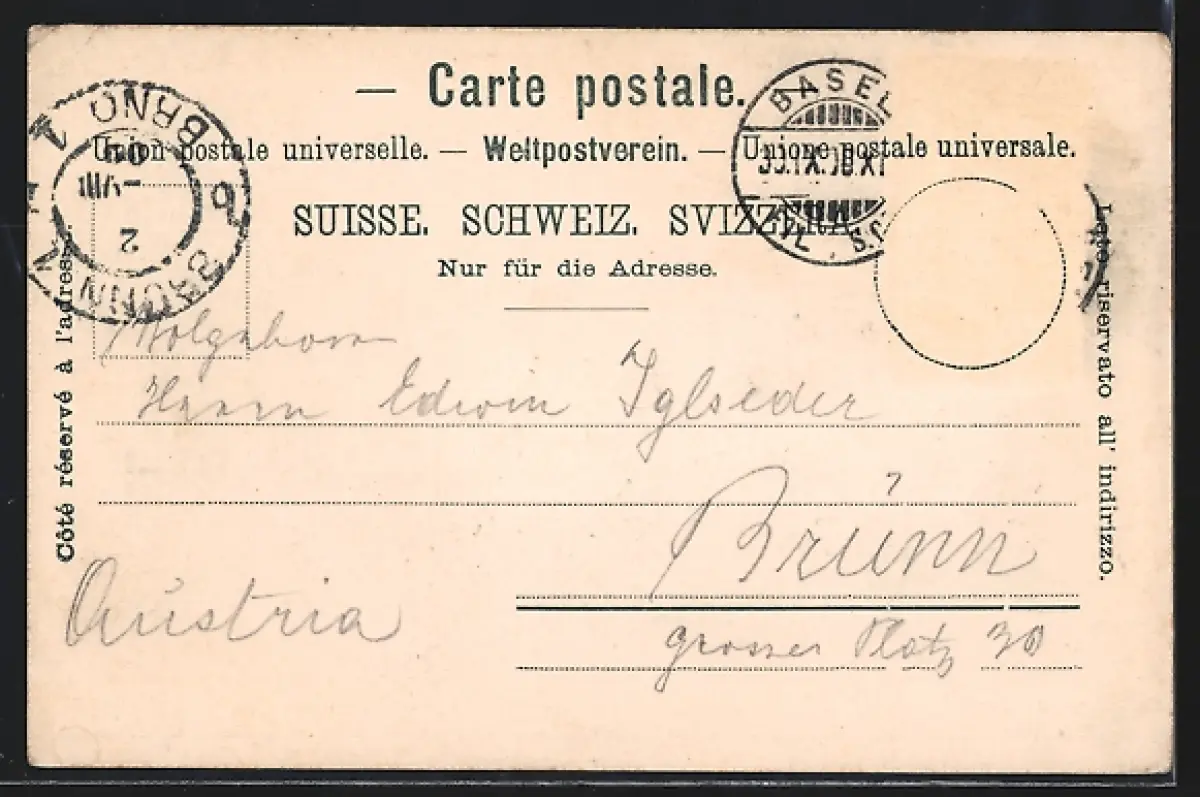 — Carte postale.
Union postale universelle. — Weltpostverein. — Unione postale universale.
SUISSE. SCHWEIZ. SVIZZERA.
Nur für die Adresse.
Côté réservé à l'adresse.
Lato riservato all' indirizzo.
BASEL
BRÜNN
BRNO
2
VIII
Herrn Edwin Iglseder
Brünn
grosser Platz 30
Austria